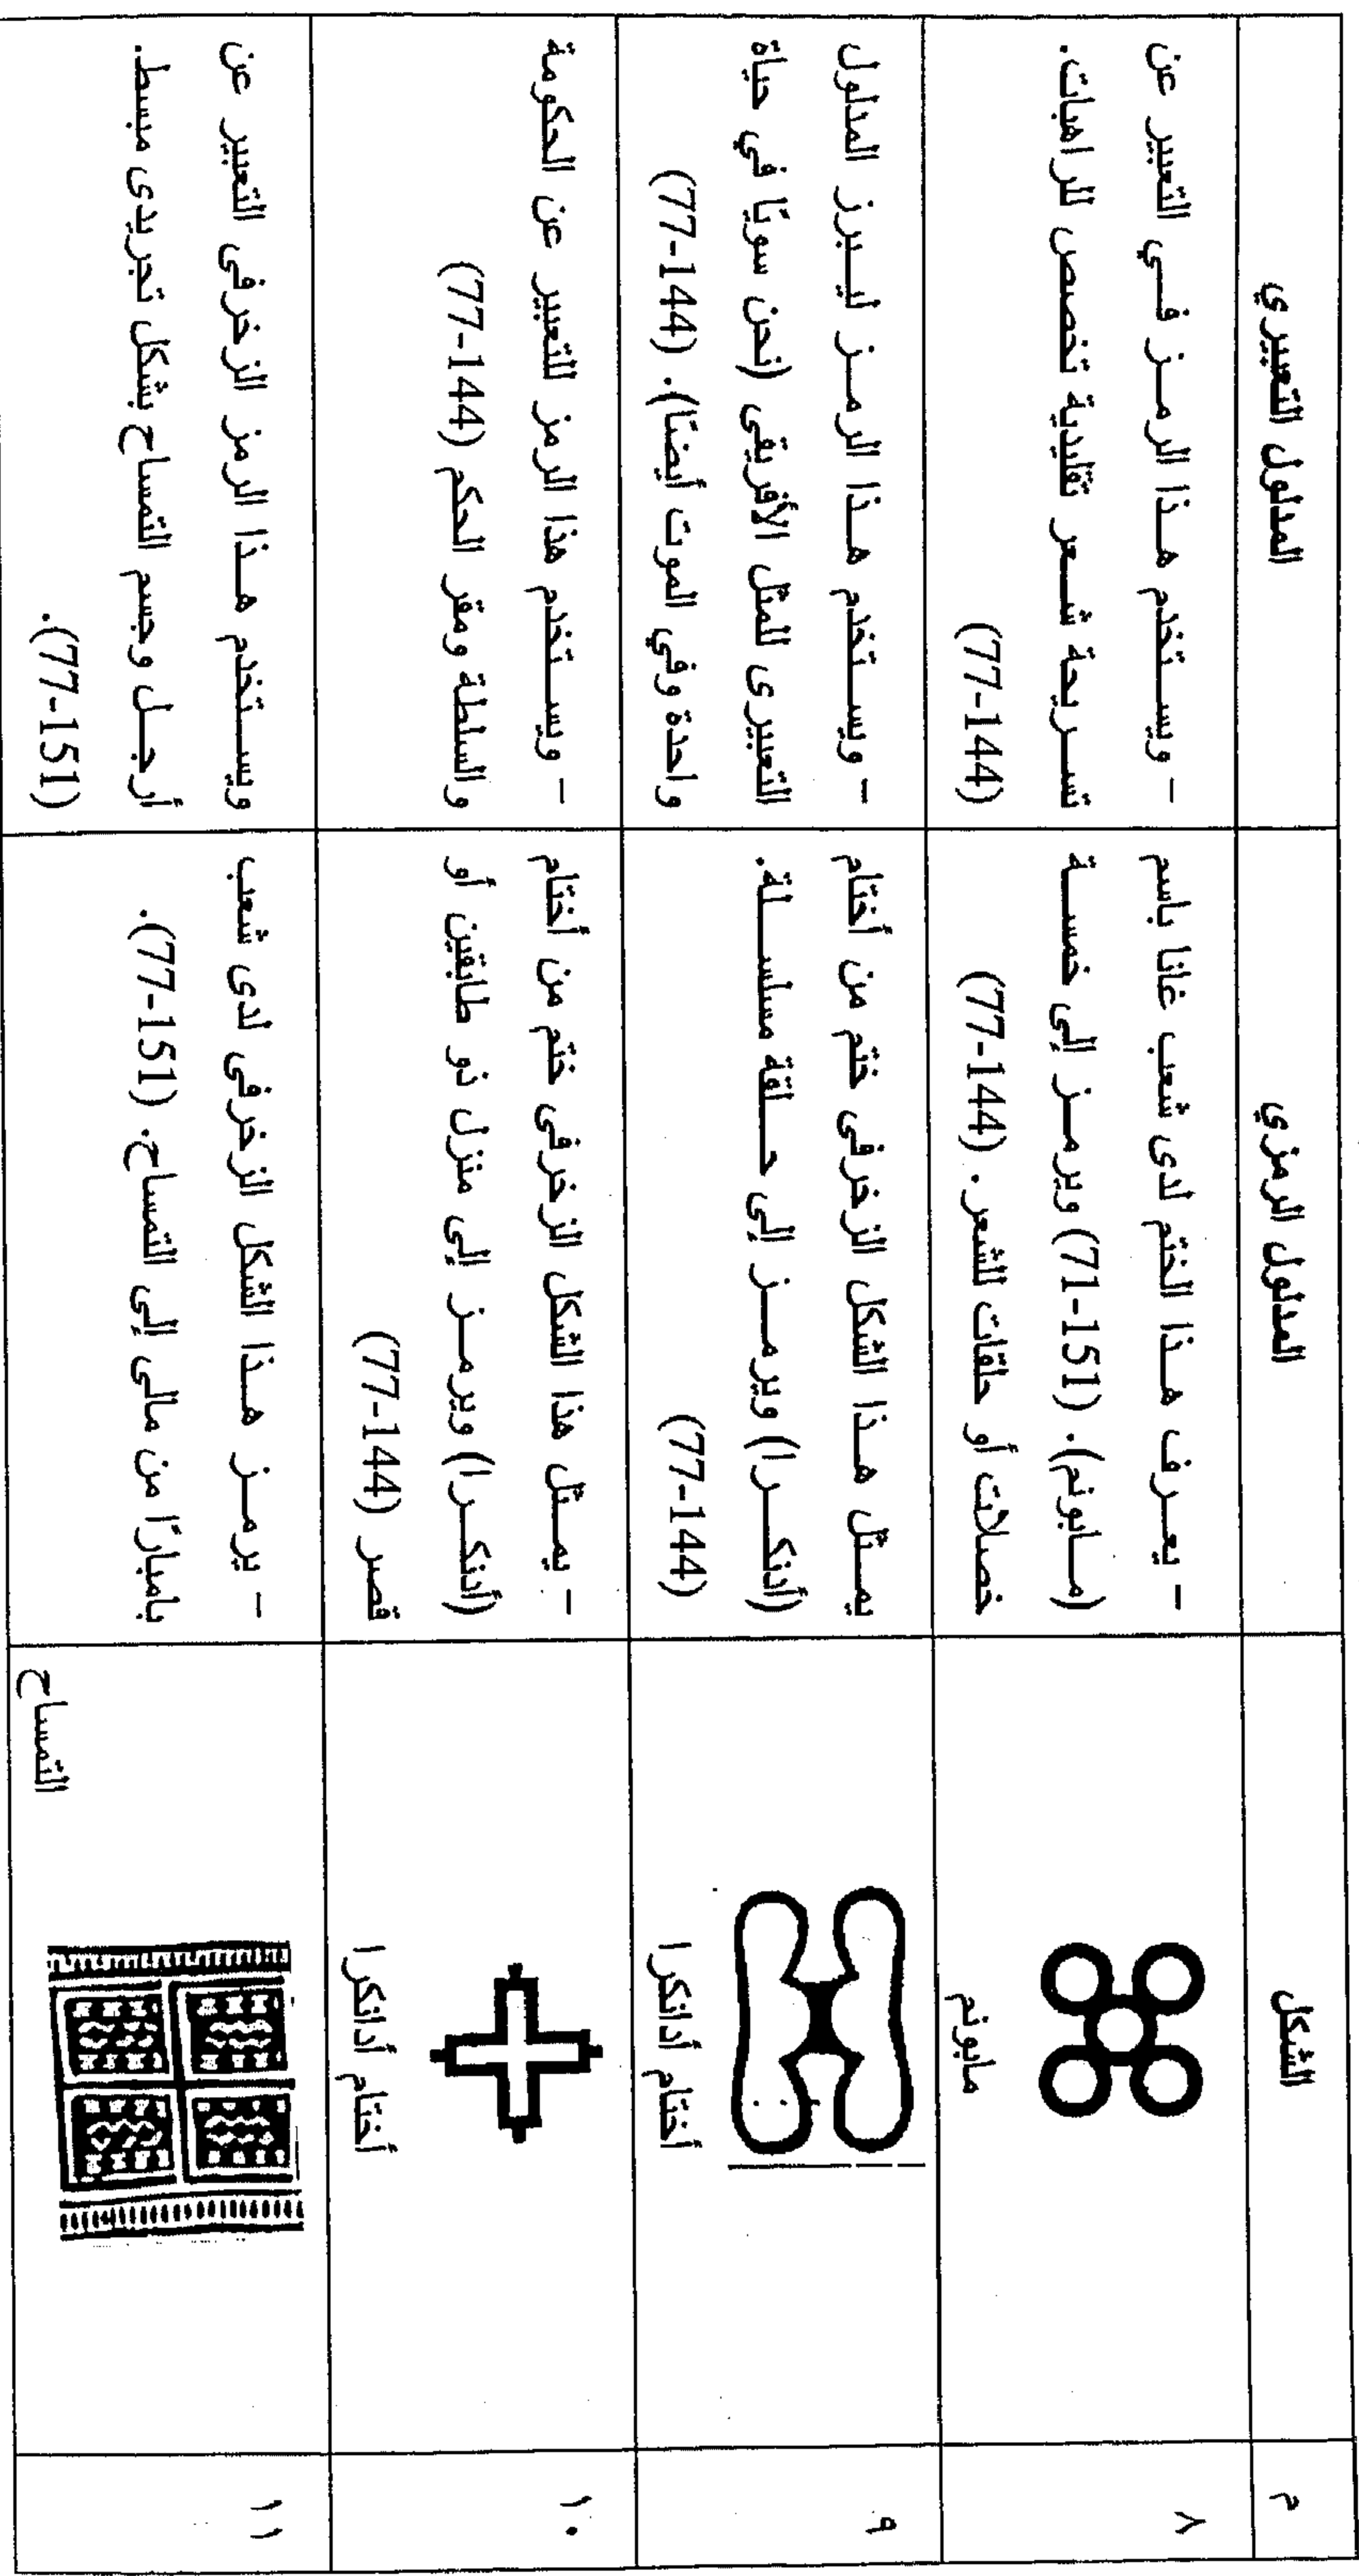 م
الشكل
المدلول الرمزي
المدلول التعبيري
٨
مابونم
- يعرف هذا الختم لدى شعب غانا باسم
(مابونم). (71-151) ويرمز إلى خمسة
خصلات أو حلقات للشعر. (77-144)
- ويستخدم هذا الرمز في التعبير عن
تسريحة شعر تقليدية تخصص للراهبات.
(77-144)
٩
أختام أدانكرا
يمثل هذا الشكل الزخرفى ختم من أختام
(أدنكرا) ويرمز إلى حلقة مسلسلة.
(77-144)
- ويستخدم هذا الرمز ليبرز المدلول
التعبيرى للمثل الأفريقى (نحن سويًا في حياة
واحدة وفي الموت أيضًا). (77-144)
١٠
أختام أدانكرا
- يمثل هذا الشكل الزخرفى ختم من أختام
(أدنكرا) ويرمز إلى منزل ذو طابقين أو
قصر (77-144)
- ويستخدم هذا الرمز للتعبير عن الحكومة
والسلطة ومقر الحكم (77-144)
١١
التمساح
- يرمز هذا الشكل الزخرفى لدى شعب
بامبارًا من مالى إلى التمساح. (77-151).
ويستخدم هذا الرمز الزخرفى التعبير عن
أرجل وجسم التمساح بشكل تجريدى مبسط.
(77-151).